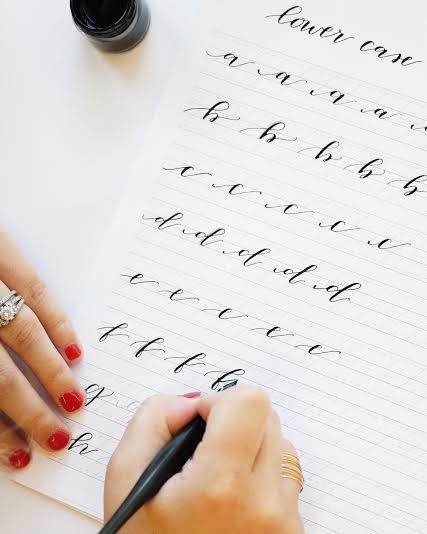 lower case
a a a a
b b b b b
c c c c c
d d d d d
e e e e e
f f f f
g
h